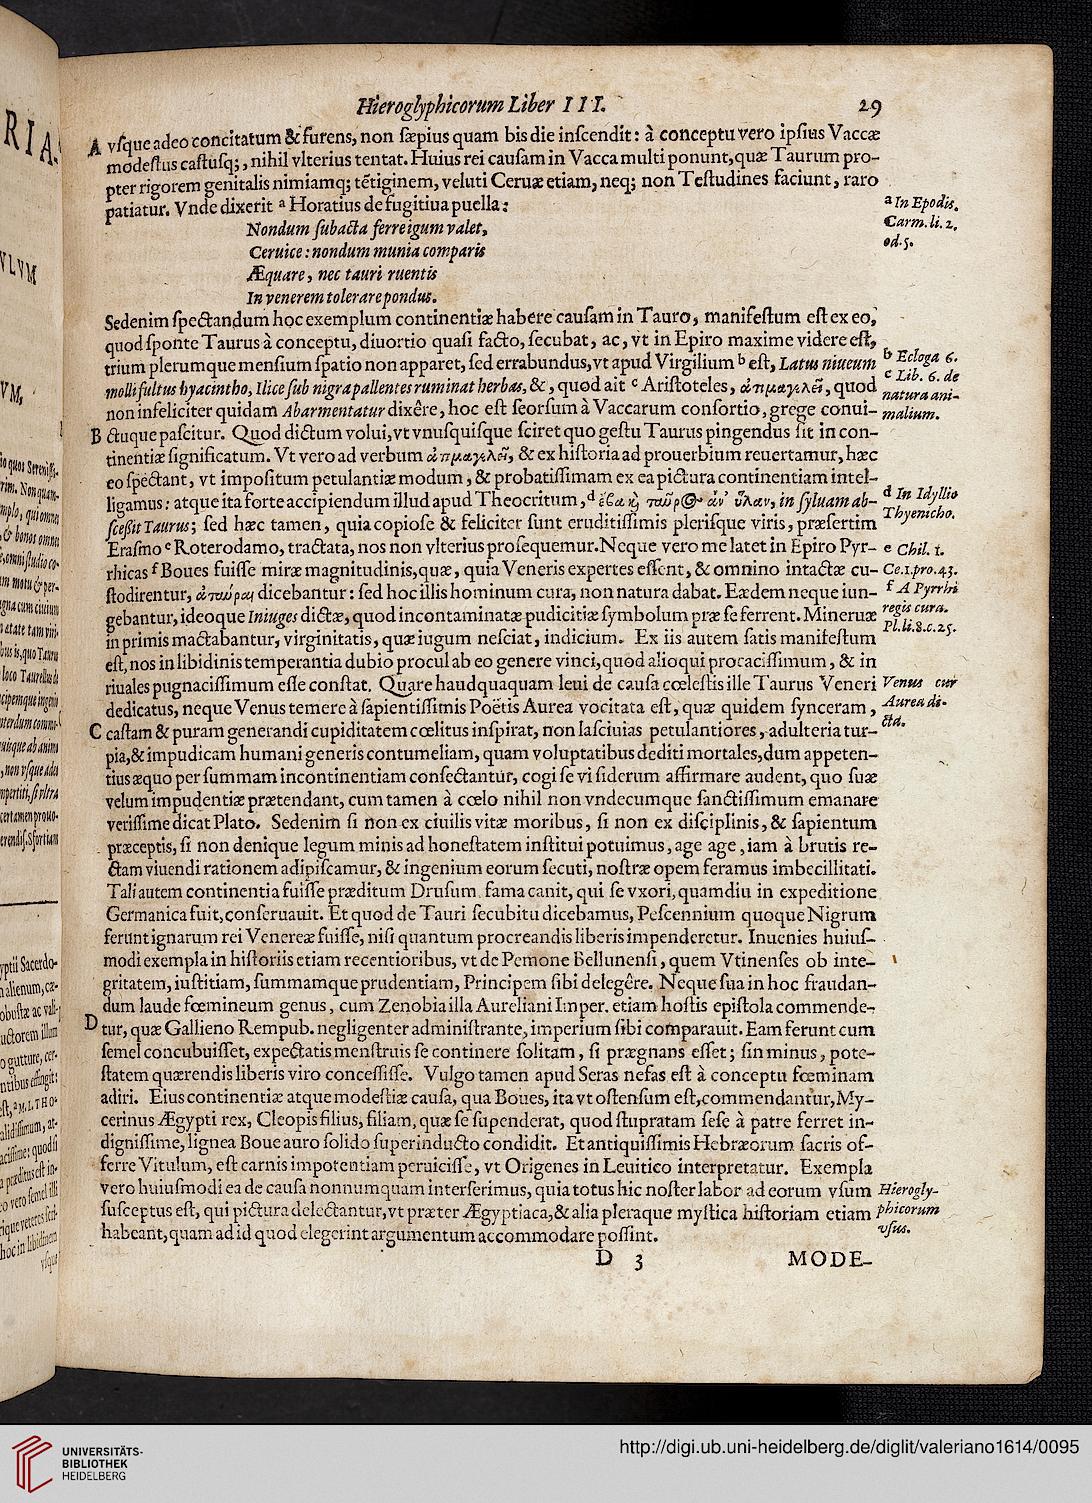 Hieroglyphicorum Liber III. 29
A vſque adeo concitatum & furens, non ſæpius quam bis die inſcendit: à conceptu vero ipſius Vaccæ
modeſtus caſtuſq;, nihil vlterius tentat. Huius rei cauſam in Vacca multi ponunt, quæ Taurum pro-
pter rigorem genitalis nimiamq; tẽtiginem, veluti Ceruæ etiam, neq; non Teſtudines faciunt, raro
patiatur. Vnde dixerit ᵃ Horatius de fugitiua puella:
ᵃ In Epodis.
Carm. li. 2.
od. 5.
Nondum ſubacta ferre igum valet,
Ceruice: nondum munia comparis
Æquare, nec tauri ruentis
In venerem tolerare pondus.
Sedenim ſpectandum hoc exemplum continentiæ habere cauſam in Tauro, manifeſtum eſt ex eo,
quod ſponte Taurus à conceptu, diuortio quaſi facto, ſecubat, ac, vt in Epiro maxime videre eſt,
trium plerumque menſium ſpatio non apparet, ſed errabundus, vt apud Virgilium ᵇ eſt, Latus niueum
molli fultus hyacintho, Ilice ſub nigra pallentes ruminat herbas, &, quod ait ᶜ Ariſtoteles, ἀπιμαγελεῖ, quod
non infeliciter quidam Abarmentatur dixêre, hoc eſt ſeorſum à Vaccarum conſortio, grege conui-
ᵇ Ecloga 6.
ᶜ Lib. 6. de
natura ani-
malium.
B ctuque paſcitur. Quod dictum volui, vt vnuſquiſque ſciret quo geſtu Taurus pingendus ſit in con-
tinentiæ ſignificatum. Vt vero ad verbum ἀπιμαγελεῖ, & ex hiſtoria ad prouerbium reuertamur, hæc
eo ſpectant, vt impoſitum petulantiæ modum, & probatiſſimam ex ea pictura continentiam intel-
ligamus: atque ita forte accipiendum illud apud Theocritum, ᵈ ἔβα καὶ ταῦρος ἀν' ὕλαν, in ſyluam ab-
ſceßit Taurus; ſed hæc tamen, quia copioſe & feliciter ſunt eruditiſſimis pleriſque viris, præſertim
Eraſmo ᵉ Roterodamo, tractata, nos non vlterius proſequemur. Neque vero me latet in Epiro Pyr-
rhicas ᶠ Boues fuiſſe miræ magnitudinis, quæ, quia Veneris expertes eſſent, & omnino intactæ cu-
ſtodirentur, ἀταύραι dicebantur: ſed hoc illis hominum cura, non natura dabat. Eædem neque iun-
gebantur, ideoque Iniuges dictæ, quod incontaminatæ pudicitiæ ſymbolum præ ſe ferrent. Mineruæ
in primis mactabantur, virginitatis, quæ iugum neſciat, indicium. Ex iis autem ſatis manifeſtum
eſt, nos in libidinis temperantia dubio procul ab eo genere vinci, quod alioqui procaciſſimum, & in
riuales pugnaciſſimum eſſe conſtat. Quare haudquaquam leui de cauſa cœleſtis ille Taurus Veneri
dedicatus, neque Venus temere à ſapientiſſimis Poëtis Aurea vocitata eſt, quæ quidem ſynceram,
ᵈ In Idyllio
Thyenicho.
e Chil. 1.
Ce. 1. pro. 43.
ᶠ A Pyrrhi
regis cura.
Pl. li. 8. c. 25.
Venus cur
Aurea di-
cta.
C caſtam & puram generandi cupiditatem cœlitus inſpirat, non laſciuias petulantiores, adulteria tur-
pia, & impudicam humani generis contumeliam, quam voluptatibus dediti mortales, dum appeten-
tius æquo per ſummam incontinentiam conſectantur, cogi ſe vi ſiderum affirmare audent, quo ſuæ
velum impudentiæ prætendant, cum tamen à cœlo nihil non vndecumque ſanctiſſimum emanare
veriſſime dicat Plato. Sedenim ſi non ex ciuilis vitæ moribus, ſi non ex diſciplinis, & ſapientum
præceptis, ſi non denique legum minis ad honeſtatem inſtitui potuimus, age age, iam à brutis re-
ctam viuendi rationem adipiſcamur, & ingenium eorum ſecuti, noſtræ opem feramus imbecillitati.
Tali autem continentia fuiſſe præditum Druſum fama canit, qui ſe vxori, quamdiu in expeditione
Germanica fuit, conſeruauit. Et quod de Tauri ſecubitu dicebamus, Peſcennium quoque Nigrum
ferunt ignarum rei Venereæ fuiſſe, niſi quantum procreandis liberis impenderetur. Inuenies huiuſ-
modi exempla in hiſtoriis etiam recentioribus, vt de Pemone Bellunenſi, quem Vtinenſes ob inte-
gritatem, iuſtitiam, ſummamque prudentiam, Principem ſibi delegêre. Neque ſua in hoc fraudan-
dum laude fœmineum genus, cum Zenobia illa Aureliani Imper. etiam hoſtis epiſtola commende-
D tur, quæ Gallieno Rempub. negligenter adminiſtrante, imperium ſibi comparauit. Eam ferunt cum
ſemel concubuiſſet, expectatis menſtruis ſe continere ſolitam, ſi prægnans eſſet; ſin minus, pote-
ſtatem quærendis liberis viro conceſſiſſe. Vulgo tamen apud Seras nefas eſt à conceptu fœminam
adiri. Eius continentiæ atque modeſtiæ cauſa, qua Boues, ita vt oſtenſum eſt, commendantur, My-
cerinus Ægypti rex, Cleopis filius, filiam, quæ ſe ſupenderat, quod ſtupratam ſeſe à patre ferret in-
digniſſime, lignea Boue auro ſolido ſuperinducto condidit. Et antiquiſſimis Hebræorum ſacris of-
ferre Vitulum, eſt carnis impotentiam peruiciſſe, vt Origenes in Leuitico interpretatur. Exempla
vero huiuſmodi ea de cauſa nonnumquam interſerimus, quia totus hic noſter labor ad eorum vſum
ſuſceptus eſt, qui pictura delectantur, vt præter Ægyptiaca, & alia pleraque myſtica hiſtoriam etiam
habeant, quam ad id quod elegerint argumentum accommodare poſſint.
Hierogly-
phicorum
vſus.
D 3 MODE-
UNIVERSITÄTS-
BIBLIOTHEK
HEIDELBERG
http://digi.ub.uni-heidelberg.de/diglit/valeriano1614/0095